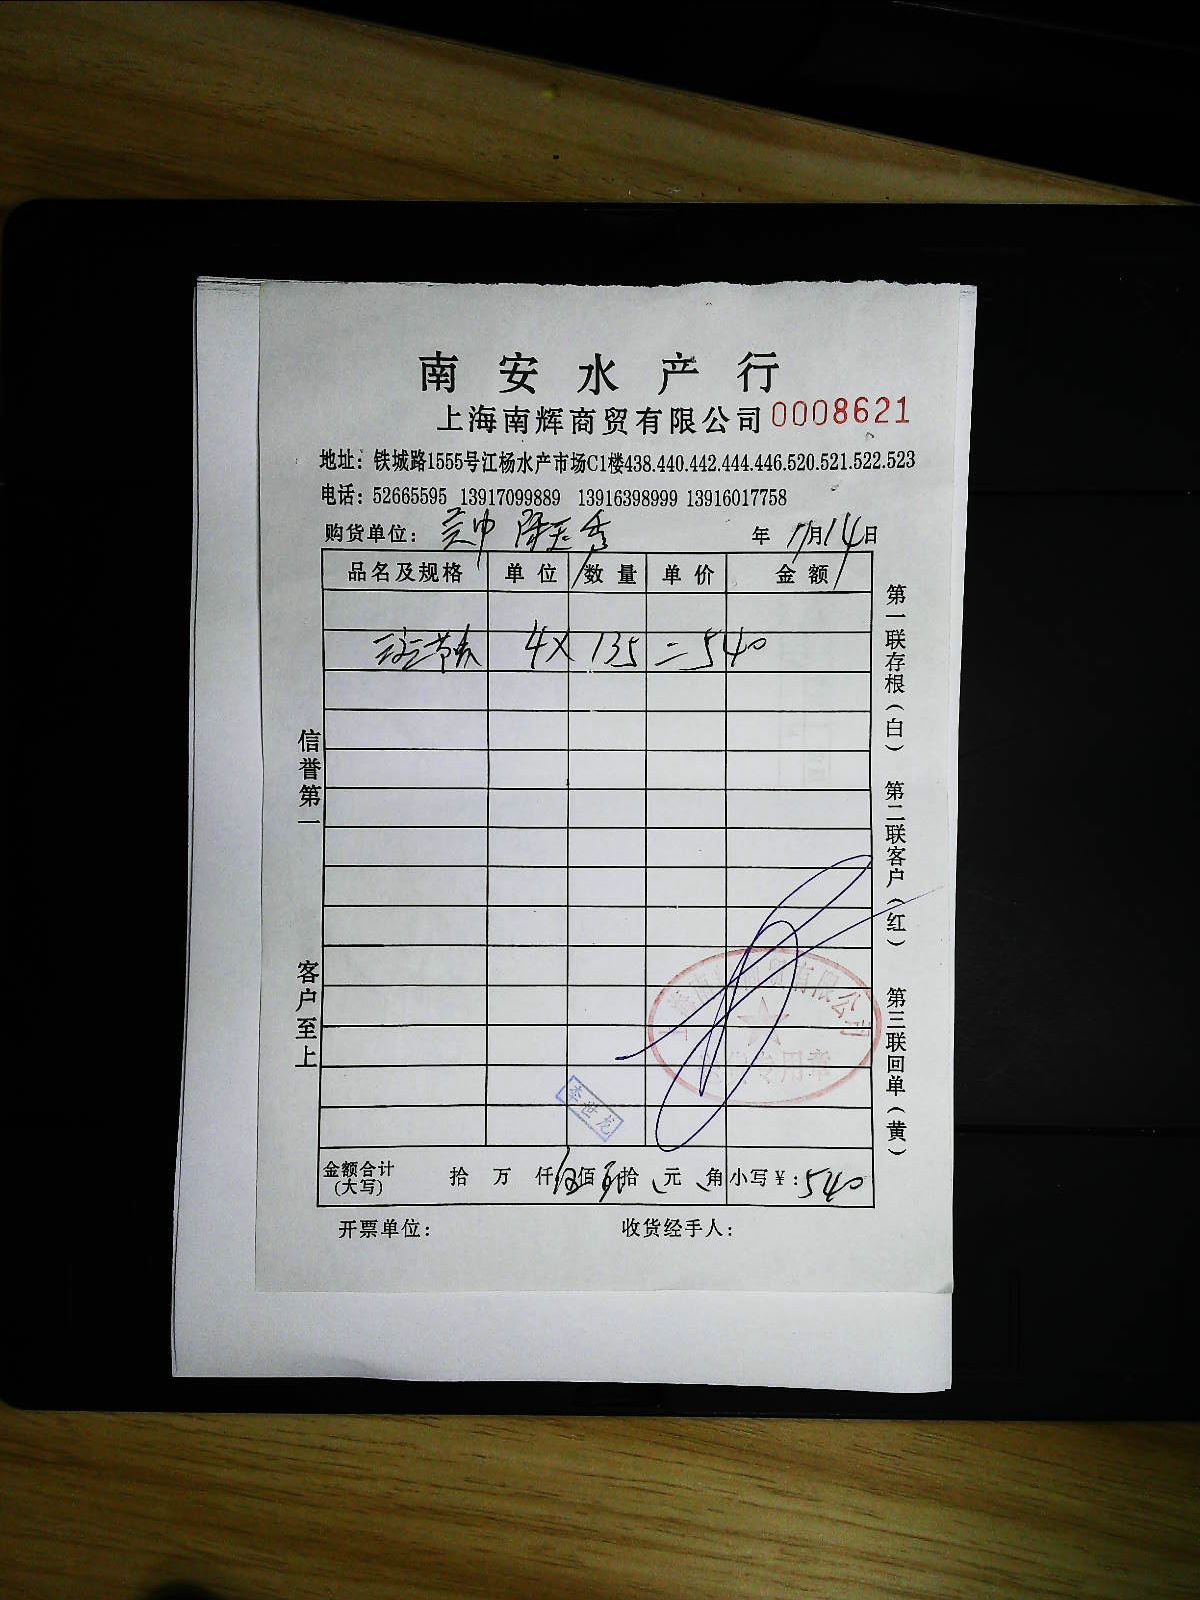 南安水产行
上海南辉商贸有限公司 0008621
地址：铁城路1555号江杨水产市场C1楼438.440.442.444.446.520.521.522.523
电话：52665595 13917099889 13916398999 13916017758
购货单位： 年 11月14日
品名及规格 单位 数量 单价 金额
4X 135 = 540
信誉第一
客户至上
第一联存根（白）
第二联客户（红）
第三联回单（黄）
有限公司
专用章
李世龙
金额合计 拾 万 仟 伍佰 肆拾 元 角 小写￥：540
（大写）
开票单位： 收货经手人：